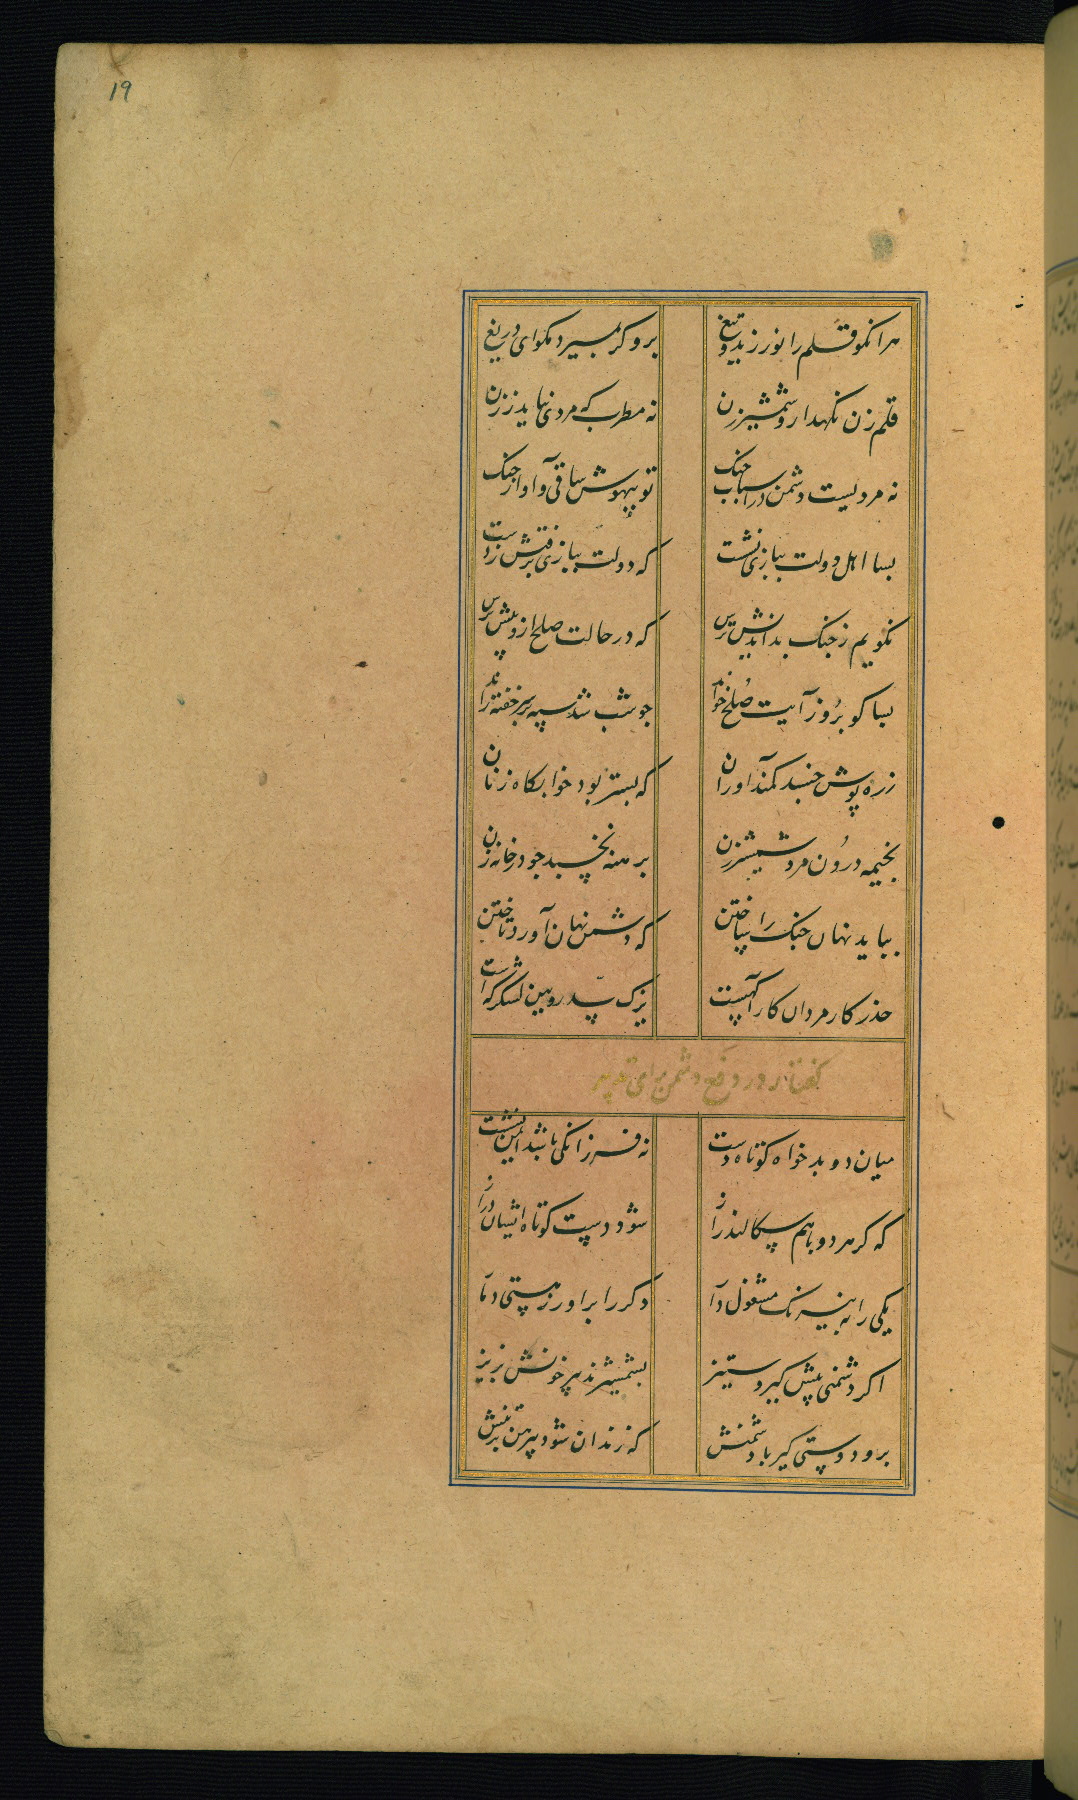 19
هر انکو قلم را نورزید و تیغ برو کر بمیرد مکو ای دریغ
قلم زن نکهدار و شمشیرزن نه مطرب که مردی نیاید ز زن
نه مردیست دشمن در اسباب جنک تو بیهوش ساقی و آواز جنک
بسا اهل دولت ببازی نشست که دولت ببازی برفتش ز دست
نکویم ز جنک بداندیش ترس که در حالت صلح ازو بیش ترس
بسا کو برُوز آیت صُلح خواند جو شب شد سپه بر سر خفته راند
زره پوش خسبد کمندآوران که بستر بود خوابکاه زنان
بخیمه درُون مرد شمشیرزن برهنه نخسبد جو در خانه زن
بباید نهان جنک را ساختن که دشمن نهان آورد تاختن
حذر کار مردان کار آکهست یزک سدّ رویین لشکرکه است
کفتار در دفع دشمن برای تدبیر
میان دو بدخواه کوتاه دست نه فرزانکی باشد ایمن نشست
که کر هر دو با هم سکالند راز شود دست کوتاه ایشان دراز
یکی را به نیرنک مشغول دار دکر را براور ز هستی دمار
اکر دشمنی پیش کیرد ستیز بشمشیر تدبیر خونش بریز
برو دوستی کیر با دشمنش که زندان شود پیرهن بر تنش